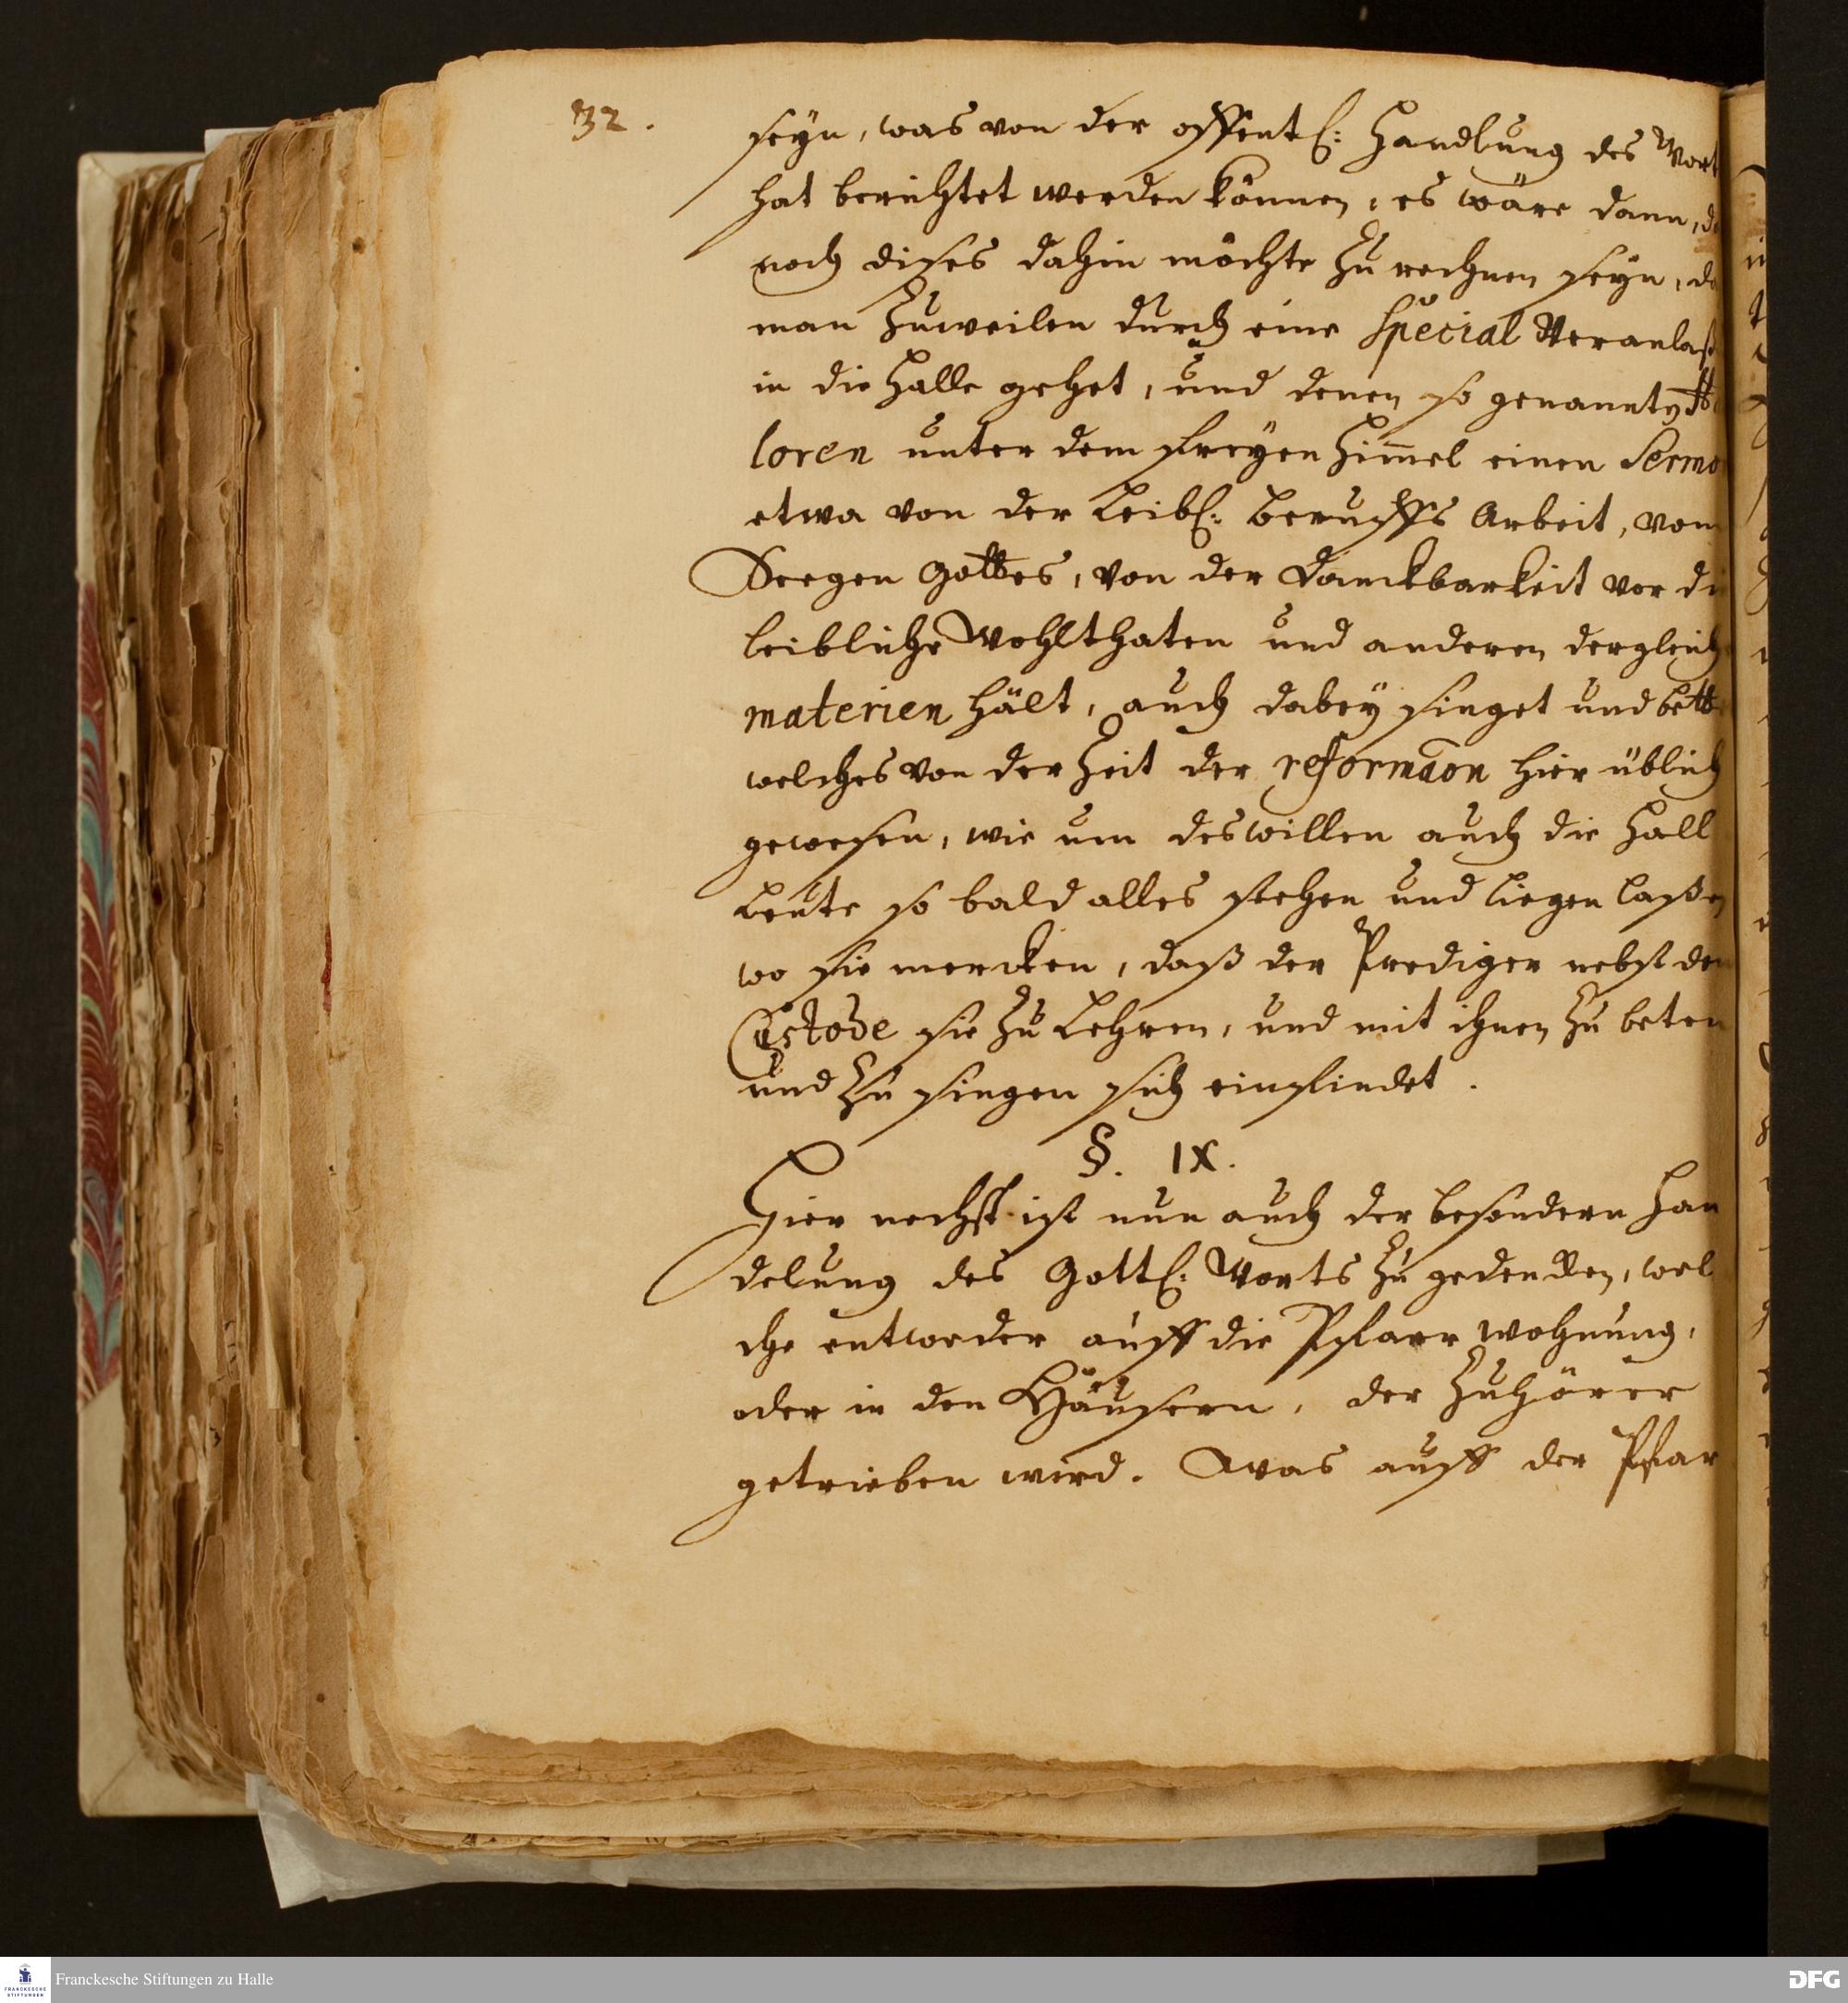 32.
seyn, was von der offentl: Handlung des Wort
hat berichtet werden können, es wäre dann, d
noch dises dahin möchte zu rechnen seyn, da
man zuweilen durch eine Special Veranlaß
in die Halle gehet, und denen so genannten
loren unter dem freyen Him̄el einen Sermo
etwa von der Leibl: Beruffs Arbeit, vom
Seegen Gottes, von der Danckbarkeit vor di
leibliche Wohlthaten und anderen dergleich
materien hält, auch dabey singet und bett
welches von der Zeit der reformaōn hier üblich
gewesen, wie um deswillen auch die Hall
Leute so bald alles stehen und liegen laßen
wo sie mercken, daß der Prediger nebst den
Custode sie zu Lehren, und mit ihnen zu beten
und zu singen sich einfindet.
§. IX.
Hier nechst ist nun auch der besondern Han
delung des Gottl: Worts zu gedencken, wel
che entweder auff die Pfarr wohnung,
oder in den Häusern, der Zuhörer
getrieben wird. Was auff der Pfar
Franckesche Stiftungen zu Halle
FRANCKESCHE
STIFTUNGEN
DFG